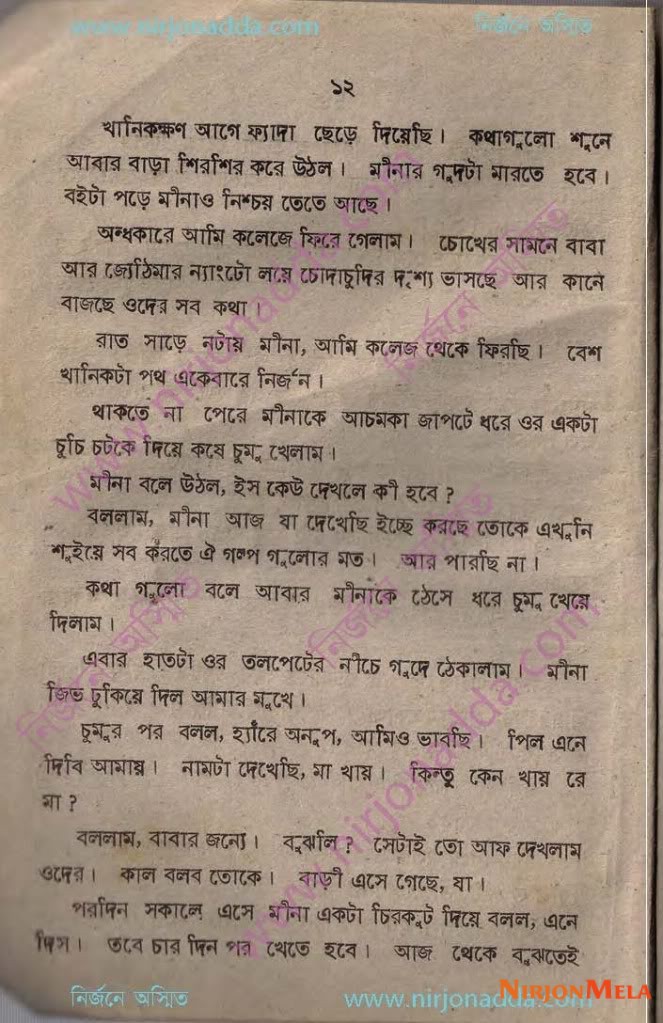 www.nirjonadda.com নির্জনে অস্মিত
১২
খানিকক্ষণ আগে ফ্যাদা ছেড়ে দিয়েছি। কথাগুলো শুনে
আবার বাড়া শিরশির করে উঠল। মীনার গুদটা মারতে হবে।
বইটা পড়ে মীনাও নিশ্চয় তেতে আছে।
অন্ধকারে আমি কলেজে ফিরে গেলাম। চোখের সামনে বাবা
আর জ্যেঠিমার ন্যাংটো লয়ে চোদাচুদির দৃশ্য ভাসছে আর কানে
বাজছে ওদের সব কথা।
রাত সাড়ে নটায় মীনা, আমি কলেজ থেকে ফিরছি। বেশ
খানিকটা পথ একেবারে নির্জন।
থাকতে না পেরে মীনাকে আচমকা জাপটে ধরে ওর একটা
চুচি চটকে দিয়ে কষে চুমু খেলাম।
মীনা বলে উঠল, ইস কেউ দেখলে কী হবে?
বললাম, মীনা আজ যা দেখেছি ইচ্ছে করছে তোকে এখুনি
শুইয়ে সব করতে ঐ গল্প গুলোর মত। আর পারছি না।
কথা গুলো বলে আবার মীনাকে ঠেসে ধরে চুমু খেয়ে
দিলাম।
এবার হাতটা ওর তলপেটের নীচে গুদে ঠেকালাম। মীনা
জিভ ঢুকিয়ে দিল আমার মুখে।
চুমুর পর বলল, হ্যাঁরে অনুপ, আমিও ভাবছি। পিল এনে
দিবি আমায়। নামটা দেখেছি, মা খায়। কিন্তু কেন খায় রে
মা?
বললাম, বাবার জন্যে। বুঝলি? সেটাই তো আফ দেখলাম
ওদের। কাল বলব তোকে। বাড়ী এসে গেছে, যা।
পরদিন সকালে এসে মীনা একটা চিরকুট দিয়ে বলল, এনে
দিস। তবে চার দিন পর খেতে হবে। আজ থেকে বুঝতেই
নির্জনে অস্মিত www.nirjonadda.com NIRJONMELA